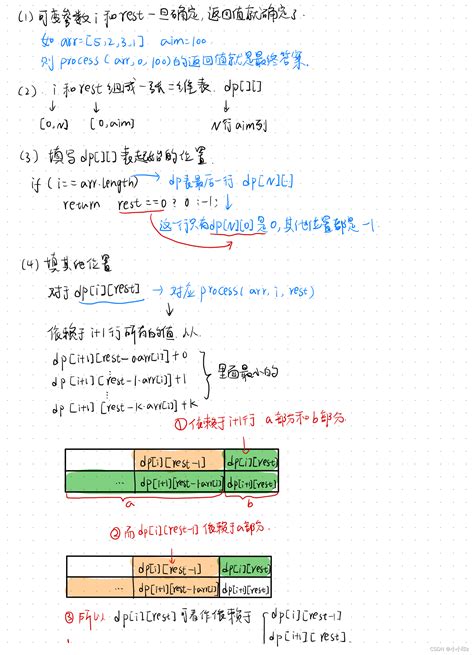 (1) 可变参数 i 和 rest 一旦确定,返回值就确定了.
如 arr=[5,2,3,1] aim=100.
则 process(arr,0,100)的返回值就是最终答案.
(2). i 和 rest 组成一张二维表. dp[][]
[0,N] [0,aim] N行aim列
(3) 填写 dp[][] 表起始的位置.
if (i==arr.length) → dp表最后一行 dp[N][..]
return rest==0 ? 0 : -1;
这一行只有dp[N][0]是0,其他位置都是-1.
(4) 填其他位置
对于 dp[i][rest] → 对应 process(arr, i, rest)
依赖于 i+1 行所有的值. 从
dp[i+1][rest-0·arr[i]]+0
dp[i+1][rest-1·arr[i]]+1
⋮
dp[i+1][rest-k·arr[i]]+k
里面最小的
① 依赖于 i+1行 a部分和b部分.
dp[i][rest-1] dp[i][rest]
... dp[i+1][rest-1·arr[i]] dp[i+1][rest]
a b
② 而dp[i][rest-1]依赖于a部分.
dp[i][rest-1] dp[i][rest]
... dp[i+1][rest-1·arr[i]] dp[i+1][rest]
③ 所以 dp[i][rest]可看作依赖于 { dp[i][rest-1]
dp[i+1][rest].